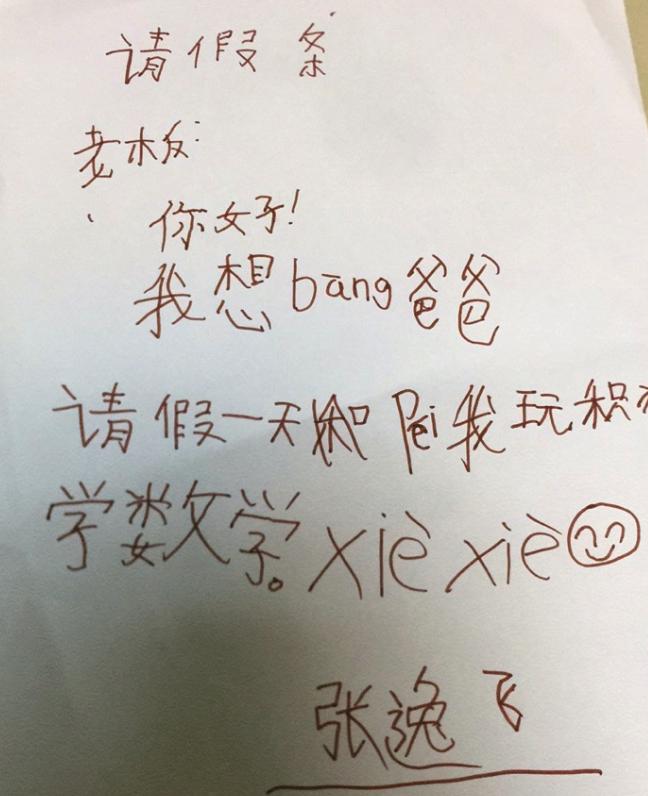 请假条
老板:
你好!
我想bāng爸爸
请假一天 Pēi我玩积
学数学。xiè xiè
张逸飞